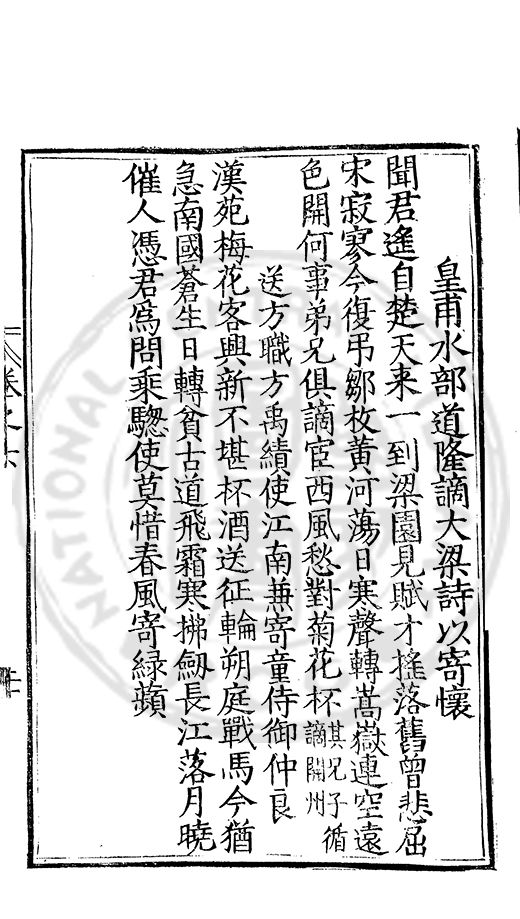 皇甫水部道隆謫大梁詩以寄懷
聞君遙自楚天来一到梁園見賦才搖落舊曾悲屈
宋寂寥今復弔鄒枚黃河蕩日寒聲轉嵩嶽連空遠
色開何事弟兄俱謫宦西風愁對菊花杯其兄子循謫開州
送方職方禹績使江南兼寄童侍御仲良
漢苑梅花客興新不堪杯酒送征輪朔庭戰馬今猶
急南國蒼生日轉貧古道飛霜寒拂劒長江落月曉
催人憑君爲問乗驄使莫惜春風寄緑蘋
卷之六
NATIONAL